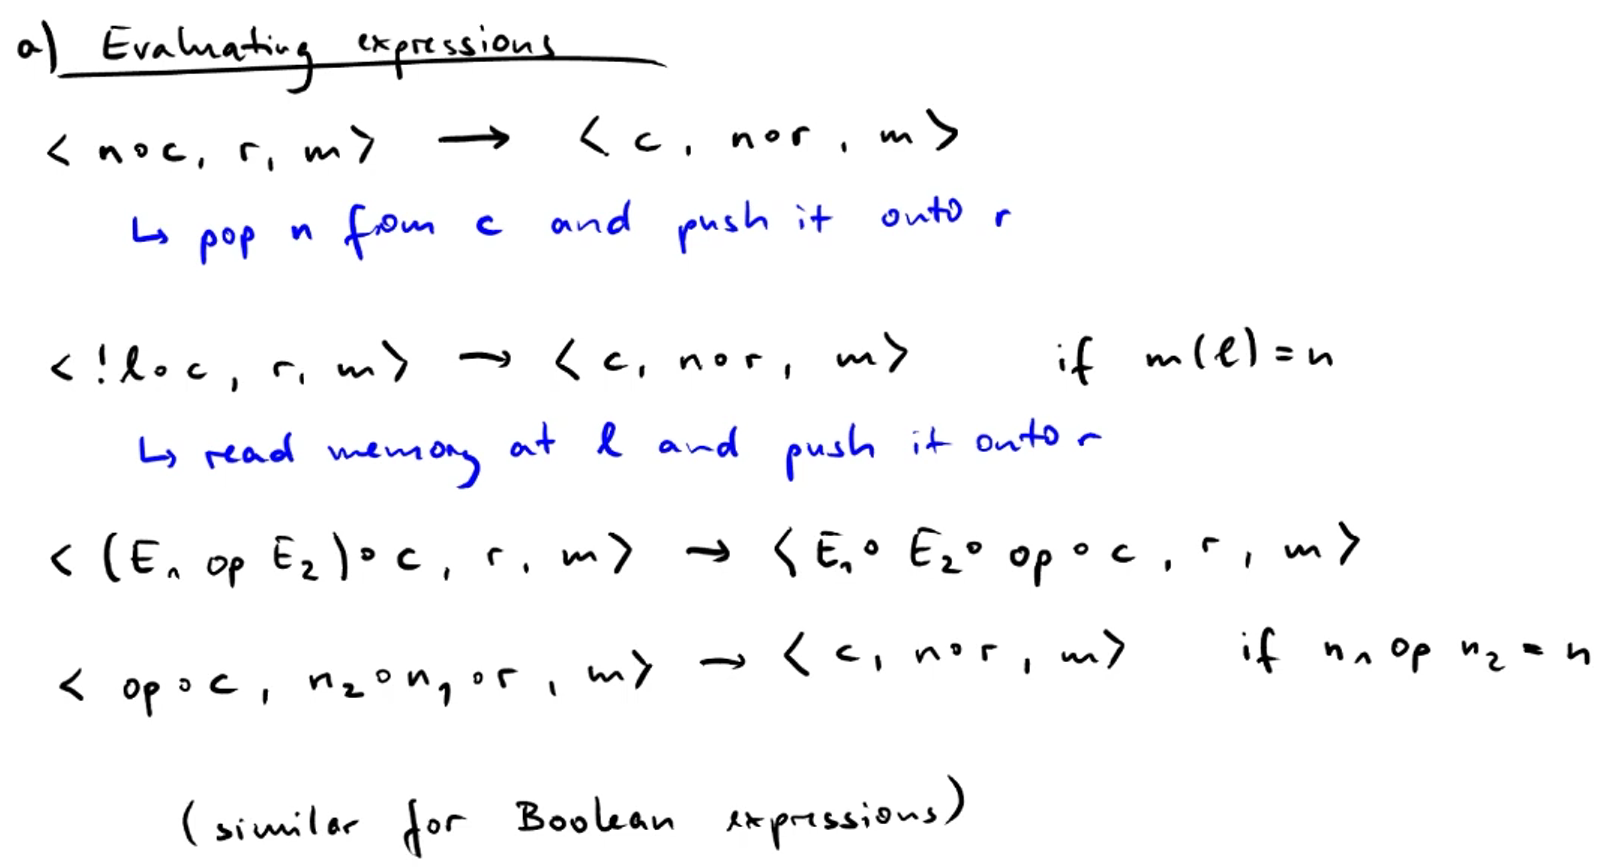 a) Evaluating expressions
< n∘c, r, m> → < c, n∘r, m >
↳ pop n from c and push it onto r
< !l∘c, r, m> → < c, n∘r, m> if m(l) = n
↳ read memory at l and push it onto r
< (E₁ op E₂)∘c, r, m> → < E₁∘ E₂∘ op∘c, r, m>
< op∘c, n₂∘n₁∘r, m> → < c, n∘r, m> if n₁ op n₂ = n
(similar for Boolean expressions)